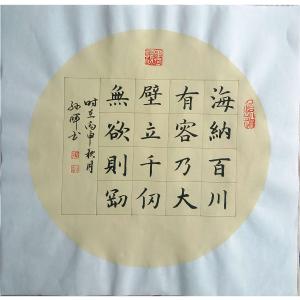 海納百川
有容乃大
壁立千仞
無欲則剛
時在丙申秋月